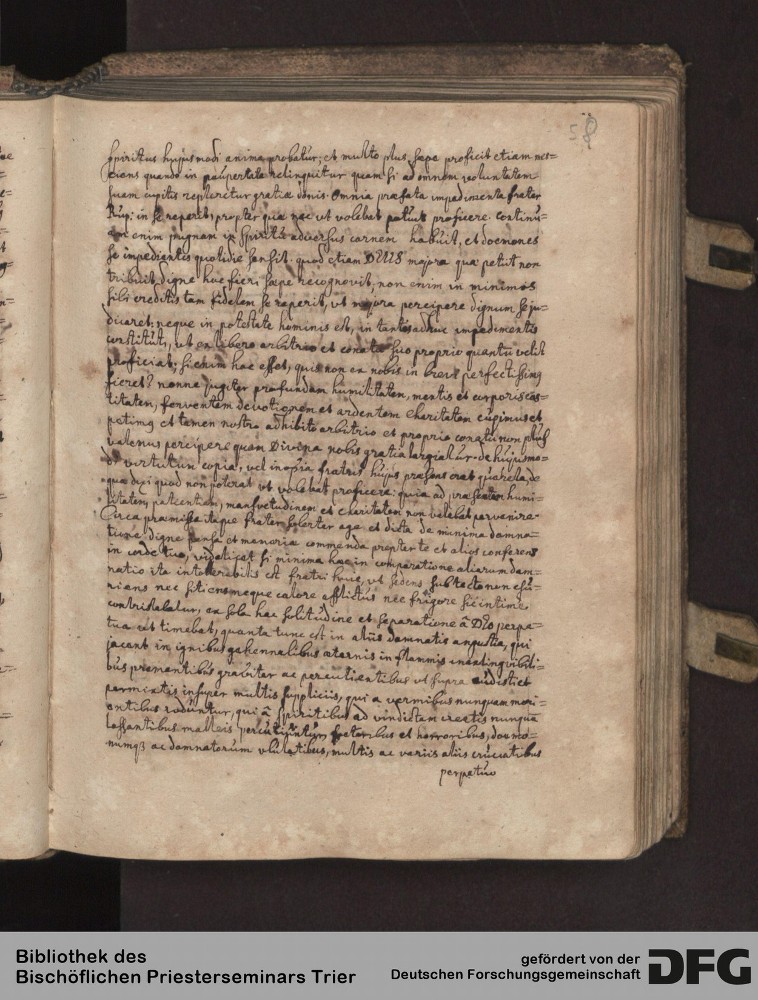 spiritus hujusmodi anima probatur; et multo plus sæpe proficit etiam nes=
ciens quando in paupertate relinquitur quam si ad omnem voluntatem
suam cupitis repleretur gratiæ donis. Omnia præfata impedimenta frater
Rup: in se reperit, propter quæ nec ut volebat potuit proficere continu=
am enim pugnam in spiritu adversus carnem habuit, et dœmones
se impedientes quotidie sensit. quod etiam DEUS majora quæ petiit non
tribuit, digne hoc fieri sæpe recognovit, non enim in minimis
sibi creditis tam fidelem se reperit, ut majora percipere dignum se ju=
dicaret; neque in potestate hominis est, in tantis adhuc impedimentis
constituti, ut ex libero arbitrio et conatu suo proprio quantu velit
proficiat; si enim hoc esset, quis non ex nobis in brevi perfectissimq
fieret? nonne jugiter profundam humilitatem, mentis et corporis cas=
titatem, ferventem devotionem et ardentem charitatem cupimus et
petimq et tamen nostro adhibito arbitrio et proprio conatu non plus
valemus percipere quam Divina nobis gratia largiatur. de hujusmo=
di virtutum copia, vel inopia fratris hujus præsens erat quærela,
quæ dixi quod non poterat ut volebat proficere: quia ad præfatam humi=
litatem, patientiam, mansvetudinem et charitatem non valebat pervenire.
Circa præmissa itaque frater solerter age et dicta de minima damna=
tione digne pensa et memoriæ commenda propter te et alios conferens
in corde tuo, videlicet si minima hæc in comparatione aliarum dam=
natio ita intolerabilis est fratri huic, ut sedens sub tecto non esu=
riens nec sitiens neque calore afflictus nec frigore sic intime,
contristabatur, ex sola hac solitudine et separatione a DEO perpe=
tua ut timebat, quanta tunc est in aliis damnatis angustia, qui
jacent in ignibus gehennalibus æternis in flammis inextinguibili=
bus prementibus graviter ac percutientibus ut supra audisti et
permixtis insuper multis suppliciis, qui a vermibus nunquam mori=
entibus roduntur, qui a spiritibus ad vindictam creatis nunqua
lassantibus malleis percutiuntur fœtoribus et horroribus, dœmo=
numq3 ac damnatorum ululatibus, multis ac variis aliis cruciatibus
perpetuo
Bibliothek des
Bischöflichen Priesterseminars Trier
gefördert von der
Deutschen Forschungsgemeinschaft
DFG